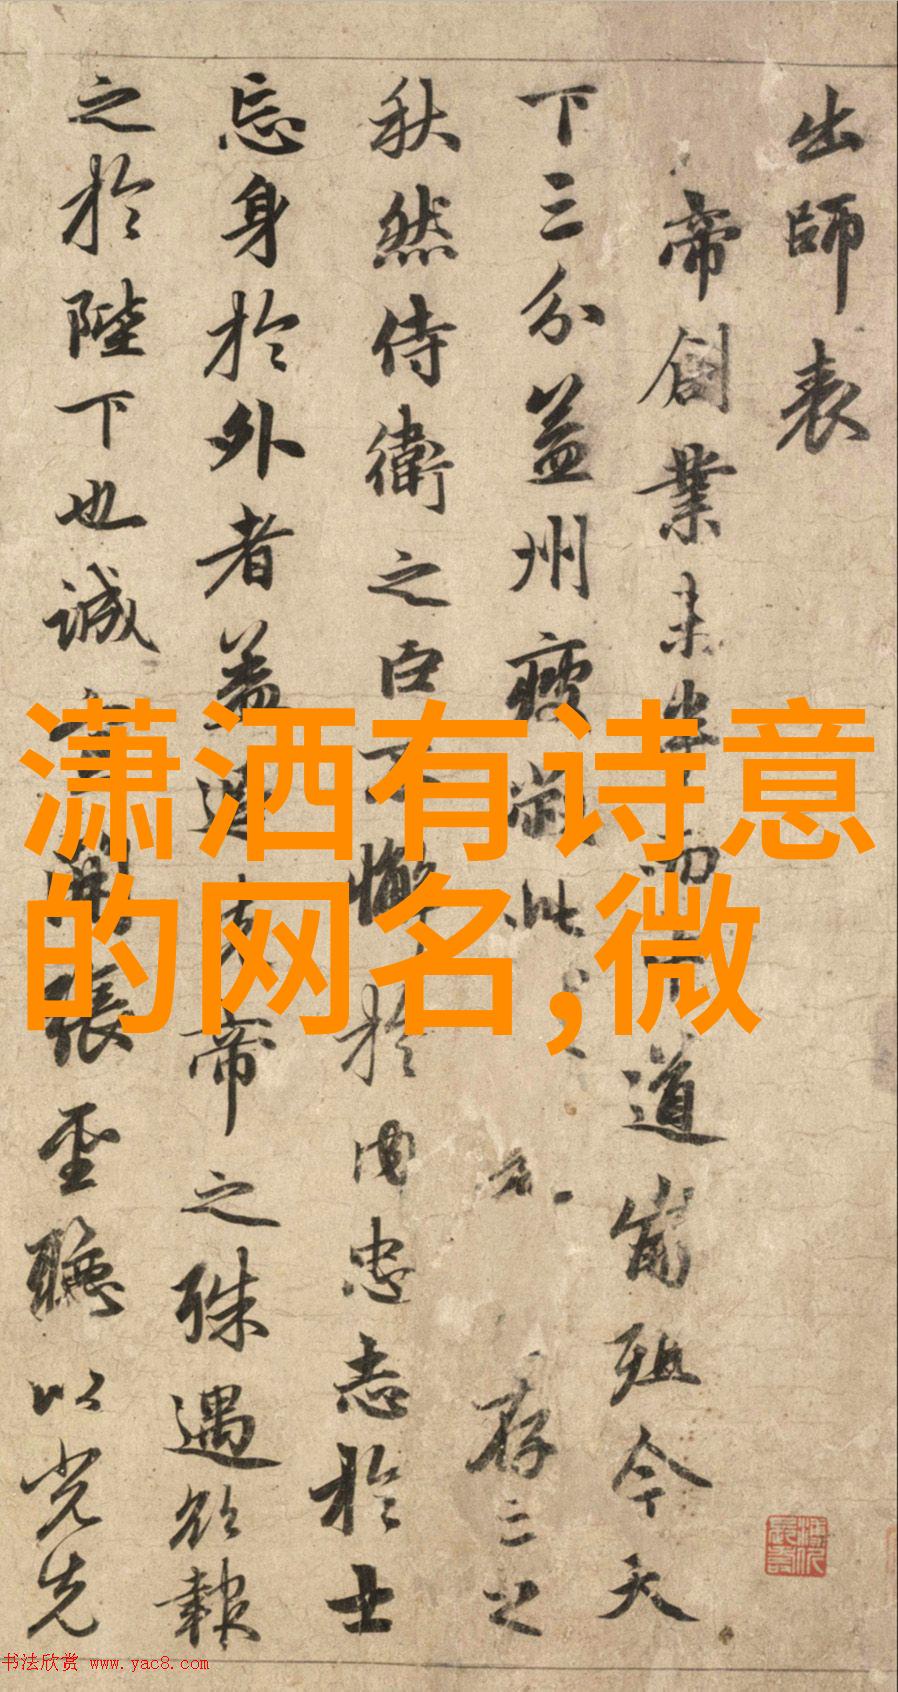 出師表
帝創業未半而道崩殂今天
下三分益州疲此存亡之
秋然侍衛之臣不懈於内忠志於士
忘身於外者蓋追先帝之殊遇欲報
之於陛下也誠宜開張聖聽以光先
潇洒有诗意
的网名,微
书法欣赏 www.yac8.com